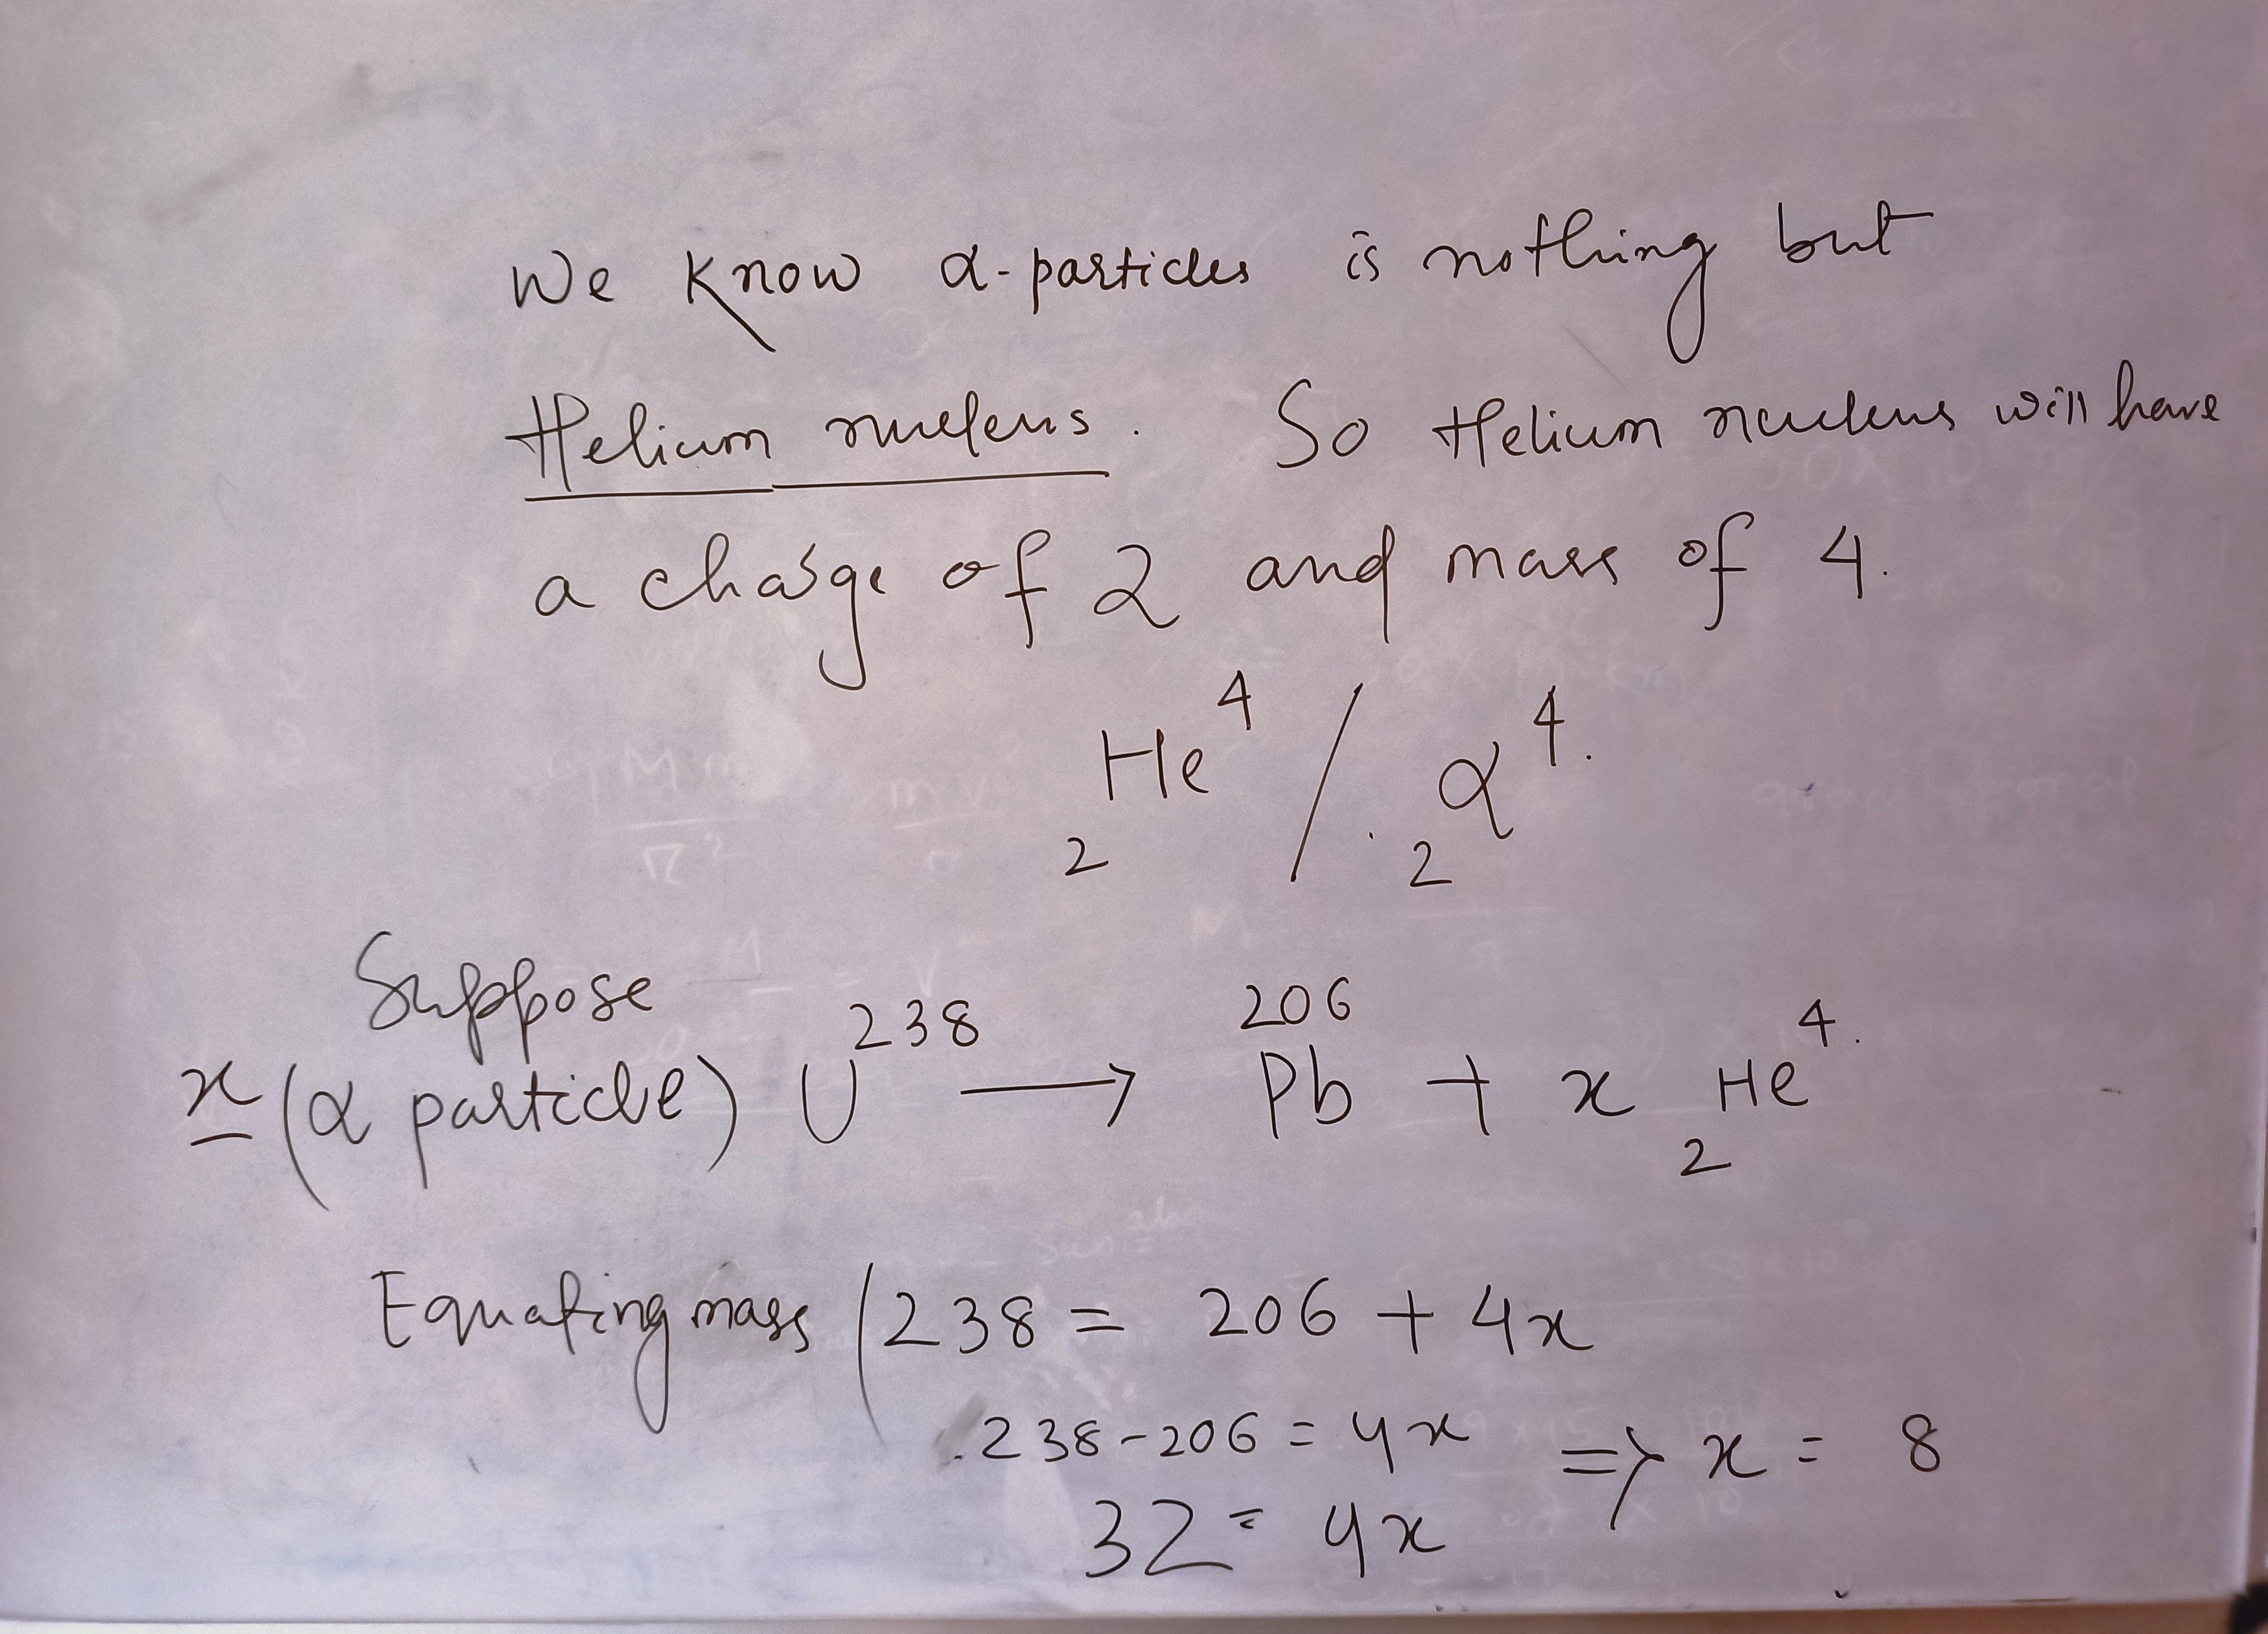 We know α-particles is nothing but
Helium nucleus. So Helium nucleus will have
a charge of 2 and mass of 4.
₂He⁴ / ₂α⁴.
Suppose
x (α particle) U²³⁸ → ²⁰⁶Pb + x ₂He⁴.
Equating mass (238 = 206 + 4x
238-206 = 4x => x = 8
32 = 4x